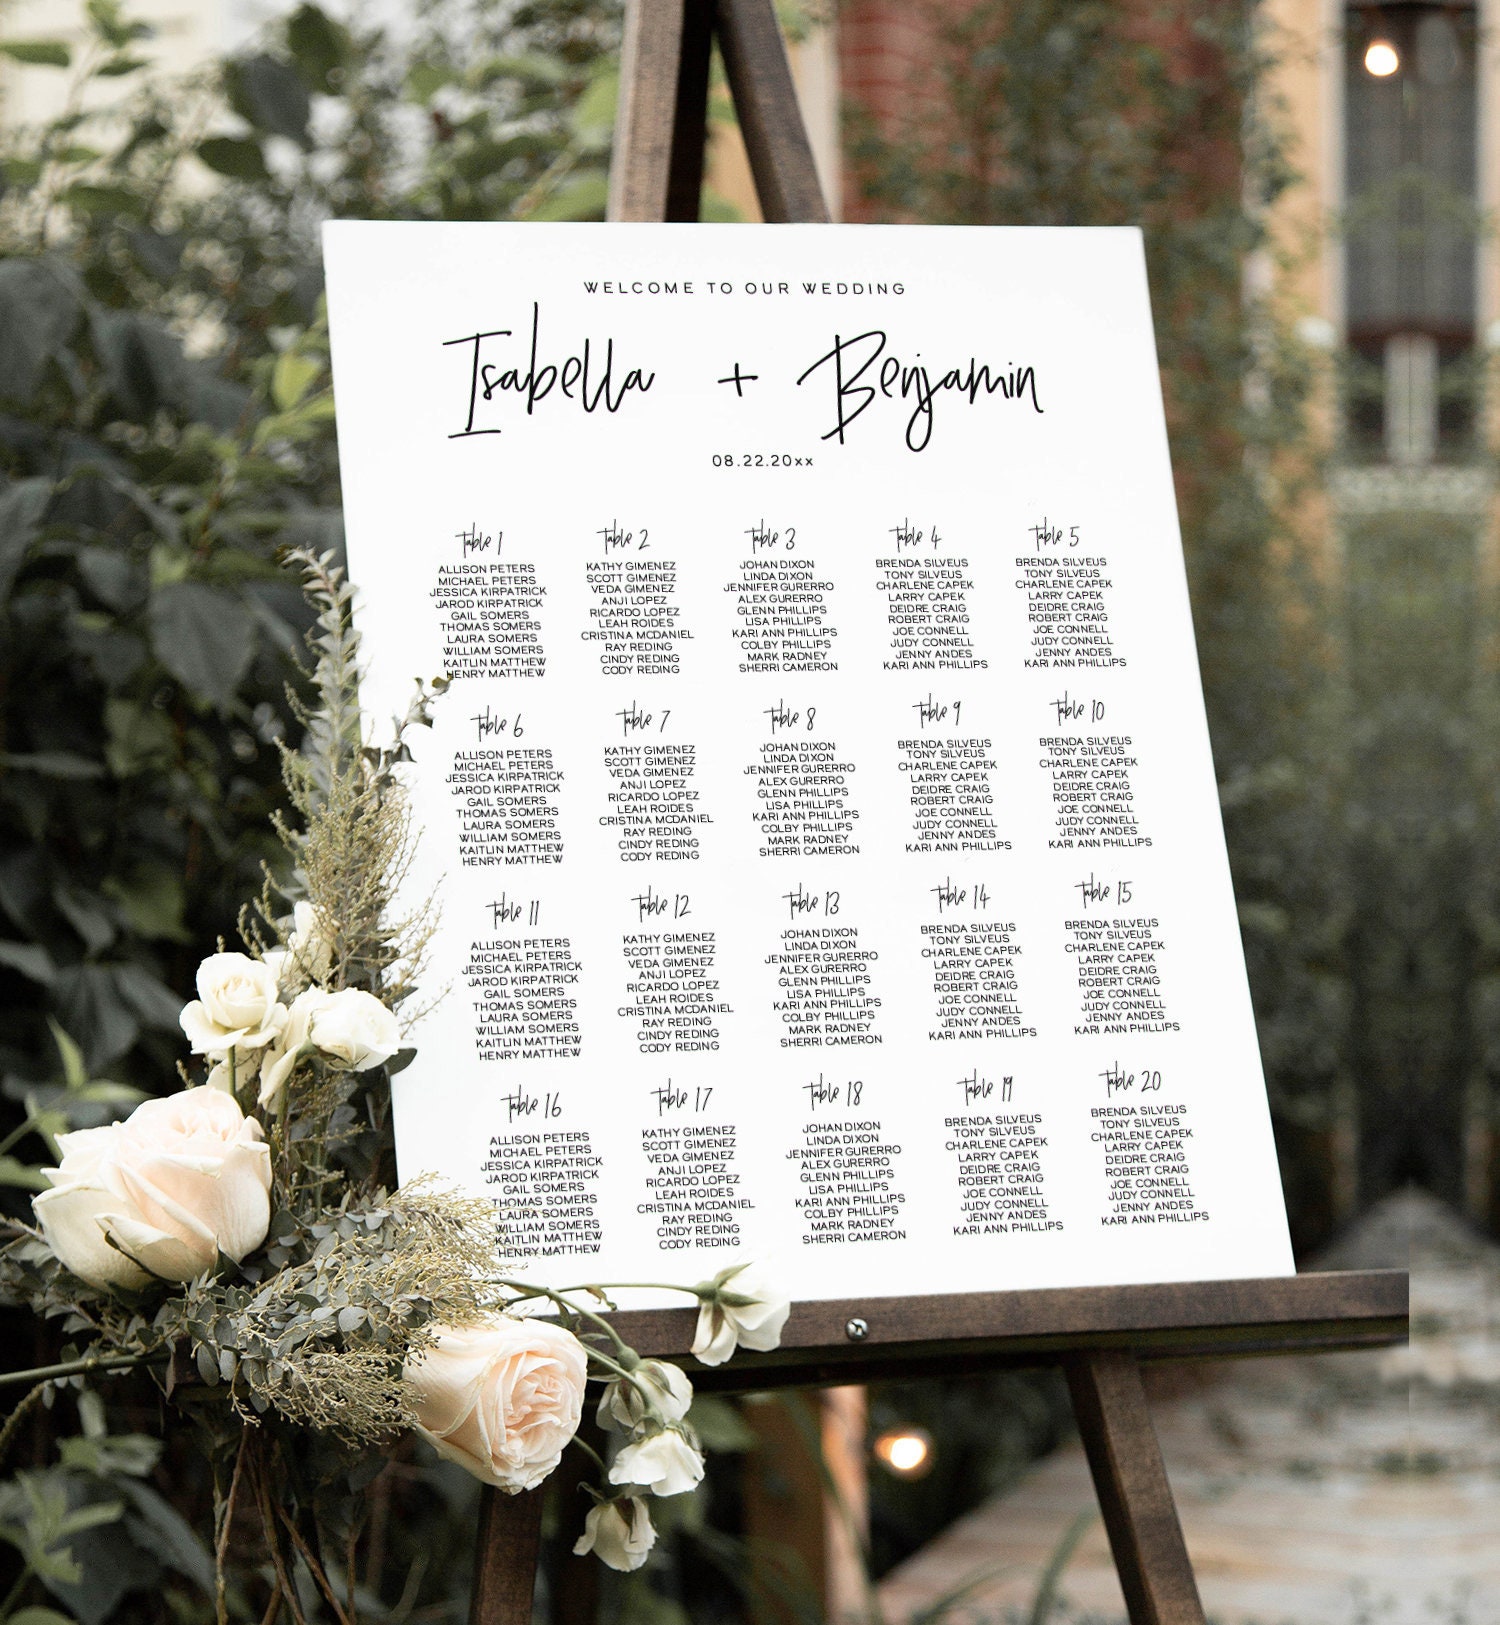 WELCOME TO OUR WEDDING
Isabella + Benjamin
08.22.20xx
Table 1
ALLISON PETERS
MICHAEL PETERS
JESSICA KIRPATRICK
JAROD KIRPATRICK
GAIL SOMERS
THOMAS SOMERS
LAURA SOMERS
WILLIAM SOMERS
KAITLIN MATTHEW
HENRY MATTHEW
Table 2
KATHY GIMENEZ
SCOTT GIMENEZ
VEDA GIMENEZ
ANJI LOPEZ
RICARDO LOPEZ
LEAH ROIDES
CRISTINA MCDANIEL
RAY REDING
CINDY REDING
CODY REDING
Table 3
JOHAN DIXON
LINDA DIXON
JENNIFER GURERRO
ALEX GURERRO
GLENN PHILLIPS
LISA PHILLIPS
KARI ANN PHILLIPS
COLBY PHILLIPS
MARK RADNEY
SHERRI CAMERON
Table 4
BRENDA SILVEUS
TONY SILVEUS
CHARLENE CAPEK
LARRY CAPEK
DEIDRE CRAIG
ROBERT CRAIG
JOE CONNELL
JUDY CONNELL
JENNY ANDES
KARI ANN PHILLIPS
Table 5
BRENDA SILVEUS
TONY SILVEUS
CHARLENE CAPEK
LARRY CAPEK
DEIDRE CRAIG
ROBERT CRAIG
JOE CONNELL
JUDY CONNELL
JENNY ANDES
KARI ANN PHILLIPS
Table 6
ALLISON PETERS
MICHAEL PETERS
JESSICA KIRPATRICK
JAROD KIRPATRICK
GAIL SOMERS
THOMAS SOMERS
LAURA SOMERS
WILLIAM SOMERS
KAITLIN MATTHEW
HENRY MATTHEW
Table 7
KATHY GIMENEZ
SCOTT GIMENEZ
VEDA GIMENEZ
ANJI LOPEZ
RICARDO LOPEZ
LEAH ROIDES
CRISTINA MCDANIEL
RAY REDING
CINDY REDING
CODY REDING
Table 8
JOHAN DIXON
LINDA DIXON
JENNIFER GURERRO
ALEX GURERRO
GLENN PHILLIPS
LISA PHILLIPS
KARI ANN PHILLIPS
COLBY PHILLIPS
MARK RADNEY
SHERRI CAMERON
Table 9
BRENDA SILVEUS
TONY SILVEUS
CHARLENE CAPEK
LARRY CAPEK
DEIDRE CRAIG
ROBERT CRAIG
JOE CONNELL
JUDY CONNELL
JENNY ANDES
KARI ANN PHILLIPS
Table 10
BRENDA SILVEUS
TONY SILVEUS
CHARLENE CAPEK
LARRY CAPEK
DEIDRE CRAIG
ROBERT CRAIG
JOE CONNELL
JUDY CONNELL
JENNY ANDES
KARI ANN PHILLIPS
Table 11
ALLISON PETERS
MICHAEL PETERS
JESSICA KIRPATRICK
JAROD KIRPATRICK
GAIL SOMERS
THOMAS SOMERS
LAURA SOMERS
WILLIAM SOMERS
KAITLIN MATTHEW
HENRY MATTHEW
Table 12
KATHY GIMENEZ
SCOTT GIMENEZ
VEDA GIMENEZ
ANJI LOPEZ
RICARDO LOPEZ
LEAH ROIDES
CRISTINA MCDANIEL
RAY REDING
CINDY REDING
CODY REDING
Table 13
JOHAN DIXON
LINDA DIXON
JENNIFER GURERRO
ALEX GURERRO
GLENN PHILLIPS
LISA PHILLIPS
KARI ANN PHILLIPS
COLBY PHILLIPS
MARK RADNEY
SHERRI CAMERON
Table 14
BRENDA SILVEUS
TONY SILVEUS
CHARLENE CAPEK
LARRY CAPEK
DEIDRE CRAIG
ROBERT CRAIG
JOE CONNELL
JUDY CONNELL
JENNY ANDES
KARI ANN PHILLIPS
Table 15
BRENDA SILVEUS
TONY SILVEUS
CHARLENE CAPEK
LARRY CAPEK
DEIDRE CRAIG
ROBERT CRAIG
JOE CONNELL
JUDY CONNELL
JENNY ANDES
KARI ANN PHILLIPS
Table 16
ALLISON PETERS
MICHAEL PETERS
JESSICA KIRPATRICK
JAROD KIRPATRICK
GAIL SOMERS
THOMAS SOMERS
LAURA SOMERS
WILLIAM SOMERS
KAITLIN MATTHEW
HENRY MATTHEW
Table 17
KATHY GIMENEZ
SCOTT GIMENEZ
VEDA GIMENEZ
ANJI LOPEZ
RICARDO LOPEZ
LEAH ROIDES
CRISTINA MCDANIEL
RAY REDING
CINDY REDING
CODY REDING
Table 18
JOHAN DIXON
LINDA DIXON
JENNIFER GURERRO
ALEX GURERRO
GLENN PHILLIPS
LISA PHILLIPS
KARI ANN PHILLIPS
COLBY PHILLIPS
MARK RADNEY
SHERRI CAMERON
Table 19
BRENDA SILVEUS
TONY SILVEUS
CHARLENE CAPEK
LARRY CAPEK
DEIDRE CRAIG
ROBERT CRAIG
JOE CONNELL
JUDY CONNELL
JENNY ANDES
KARI ANN PHILLIPS
Table 20
BRENDA SILVEUS
TONY SILVEUS
CHARLENE CAPEK
LARRY CAPEK
DEIDRE CRAIG
ROBERT CRAIG
JOE CONNELL
JUDY CONNELL
JENNY ANDES
KARI ANN PHILLIPS